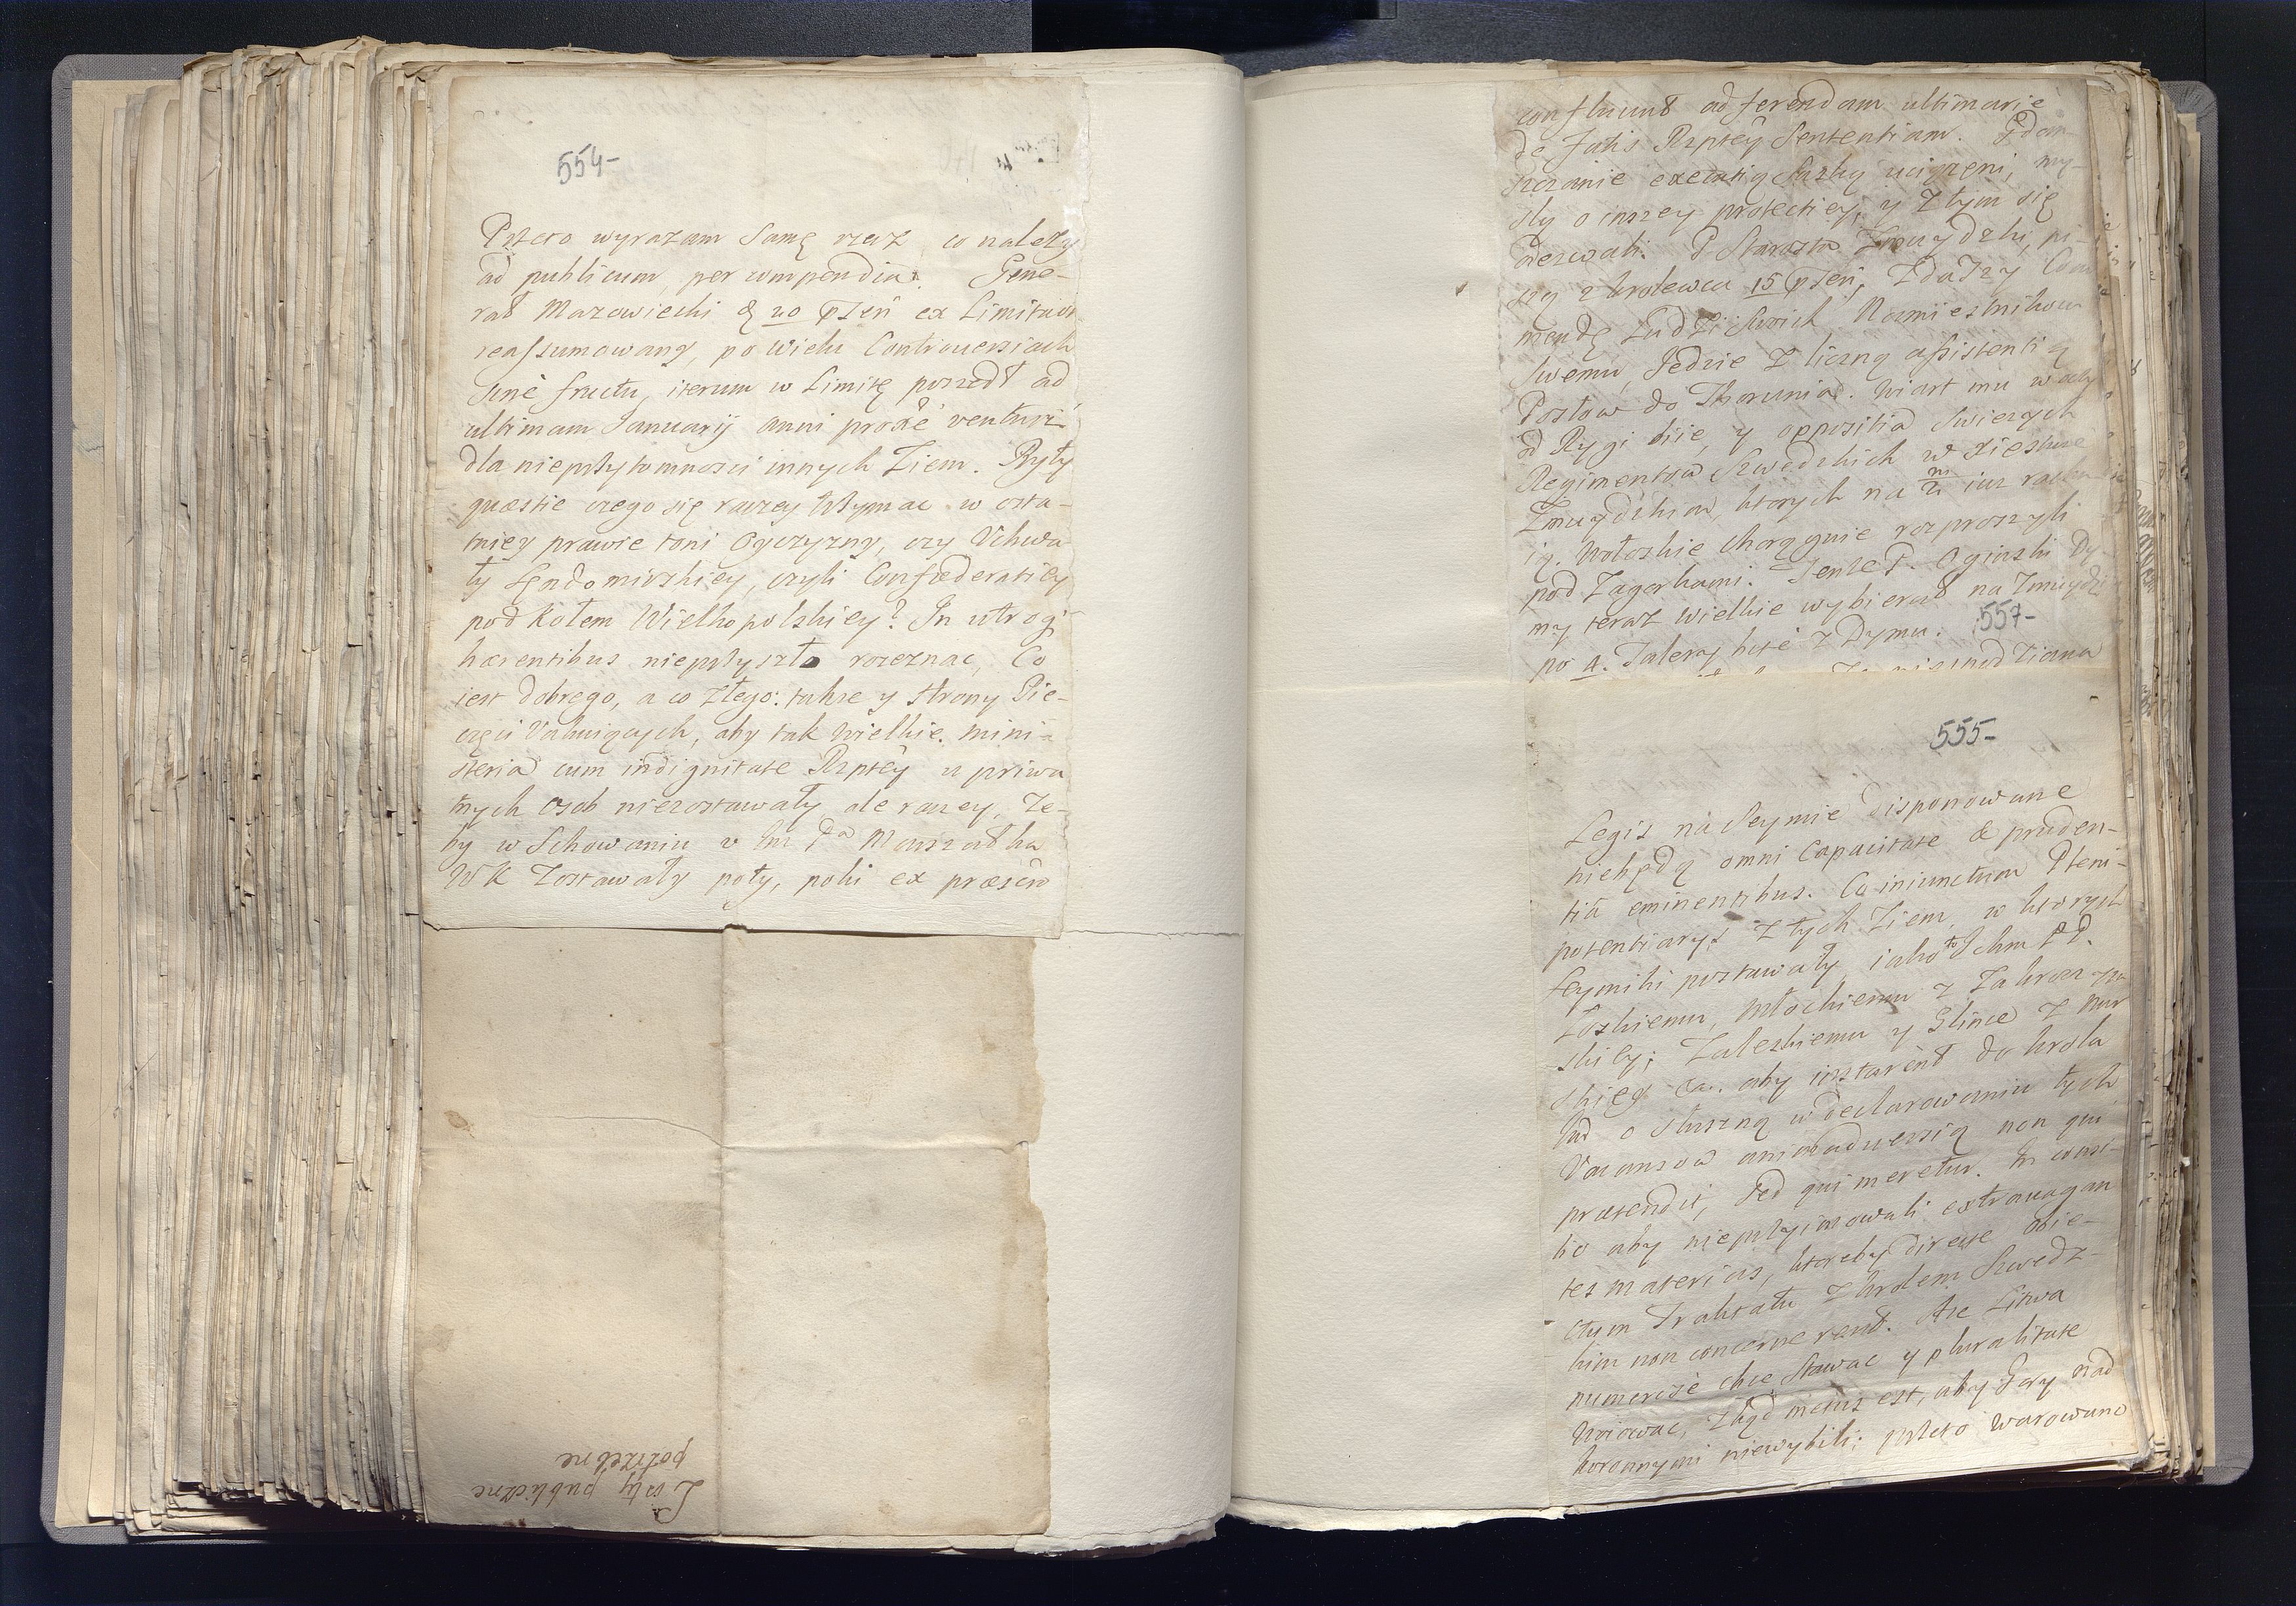 554-
Przeto wyrazam Samę rzecz co należy
ad publicum, per compendia. Gene-
rał Mazowiecki d 20 pzeń ex Limitaõe
reassumowany, po wielu Controuersiach
sine fructu, iterum w Limitę poszedł ad
ultimam Januarij anni proxe venturi
dla nieprzytomnosci innych Ziem. Były
quæstie czego się raczey trzymac w osta-
tniey prawie toni Oyczyzny, czy Vchwa-
ły Sędomirskiey, czyli Confœderatiey
pod kołem Wielkopolskiey? In utroq
hærentibus nieprzyszło rozeznac, Co
iest dobrego, a co złego: takze y strony Pie-
częci Vakuiących, aby tak wielkie mini-
steria cum indignitate Rzptey u priwa
tnych osob niezostawały ale raczey, Ze-
by w Schowaniu v Im Pa Marszałka
WK Zostawały poty, poki ex præscri
Listy publiczne
potrzebne
confluunt ad ferendam ultimarie
de fatis Rzptey Sententiam. Gdan-
szczanie executią Saską ucięzeni, my-
sly o inszey protectiey, y z tym się
odezwali. P Starosta Zmuydzki, pi-
szą z krolewca 15 pzeń, Zdawszy Com
mendę Ludzi Swoich Namiestnikowi
Swemu, Jedzie z liczną assistentią
Posłow do Thorunia. Wiatr mu w oczy
od Rygi bije, y oppositia Swiezych
Regimentow Szwedzkich w Xiestwie
Zmuydzkim, ktorych na m/2 iuz rachu
ią. Wołoskie chorągwie rozproszyli
pod Zagorkami. Tenze P. Oginski Dy-
my teraz wielkie wybierał na Zmuydzi
po 4. Talery bite z Dymu. 557-
555-
Legis na Seymie disponowane
niebędą omni Capacitate & pruden-
tia eminentibus. Co iniunctum Pleni-
potentiarys z tych Ziem, w ktorych
Seymiki postawały, iako to Ichm PP.
Łoskiemu, Młockiemu z Zakroczym
skiey; Zaleskiemu y Glince z Nur
skiey &c. aby instarent do krola
Imci o słuszną w declarowaniu tych
Vacansow animadwersią non qui
prætendit, sed qui meretur. In consi-
lio aby nieprzyimowali extrauagan
tes materias, ktoreby directe obie-
ctum Traktatu z krolem Szwedz-
kim non concernerent. Ale Litwa
numerose chce Stawac y pluralitate
woiowac, zkąd metus est, aby Gory nad
koronnymi niewybili; przeto warowano